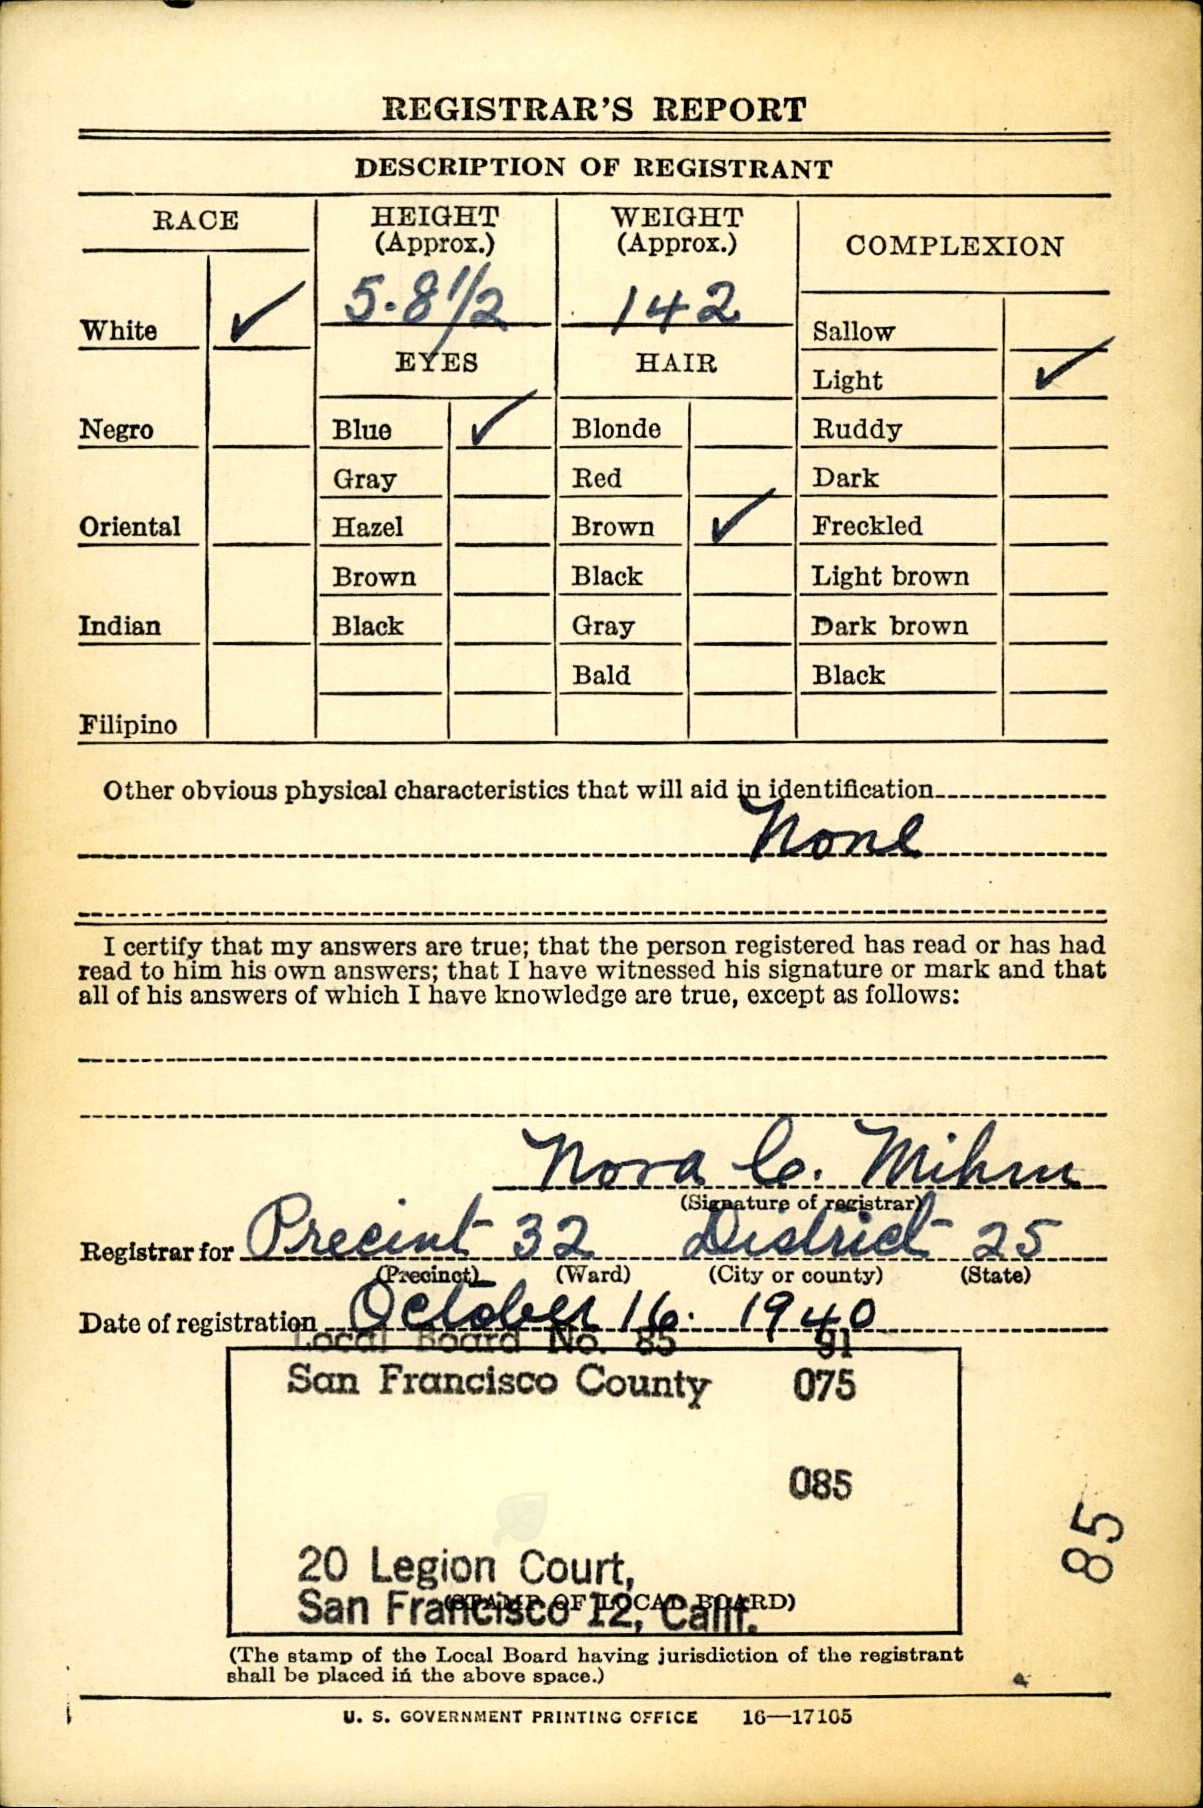 REGISTRAR'S REPORT
DESCRIPTION OF REGISTRANT
RACE
HEIGHT
(Approx.)
WEIGHT
(Approx.)
COMPLEXION
5-8 1/2
142
White ✓
EYES
HAIR
Sallow
Light ✓
Negro
Blue ✓
Blonde
Ruddy
Gray
Red
Dark
Oriental
Hazel
Brown ✓
Freckled
Brown
Black
Light brown
Indian
Black
Gray
Dark brown
Bald
Black
Filipino
Other obvious physical characteristics that will aid in identification
None
I certify that my answers are true; that the person registered has read or has had
read to him his own answers; that I have witnessed his signature or mark and that
all of his answers of which I have knowledge are true, except as follows:
Nora C. Mihm
(Signature of registrar)
Registrar for Precint 32 District 25
(Precinct) (Ward) (City or county) (State)
Date of registration October 16. 1940
Local Board No. 85 91
San Francisco County 075
085
20 Legion Court,
San Francisco 12, Calif.
(STAMP OF LOCAL BOARD)
85
(The stamp of the Local Board having jurisdiction of the registrant
shall be placed in the above space.)
U. S. GOVERNMENT PRINTING OFFICE 16—17105